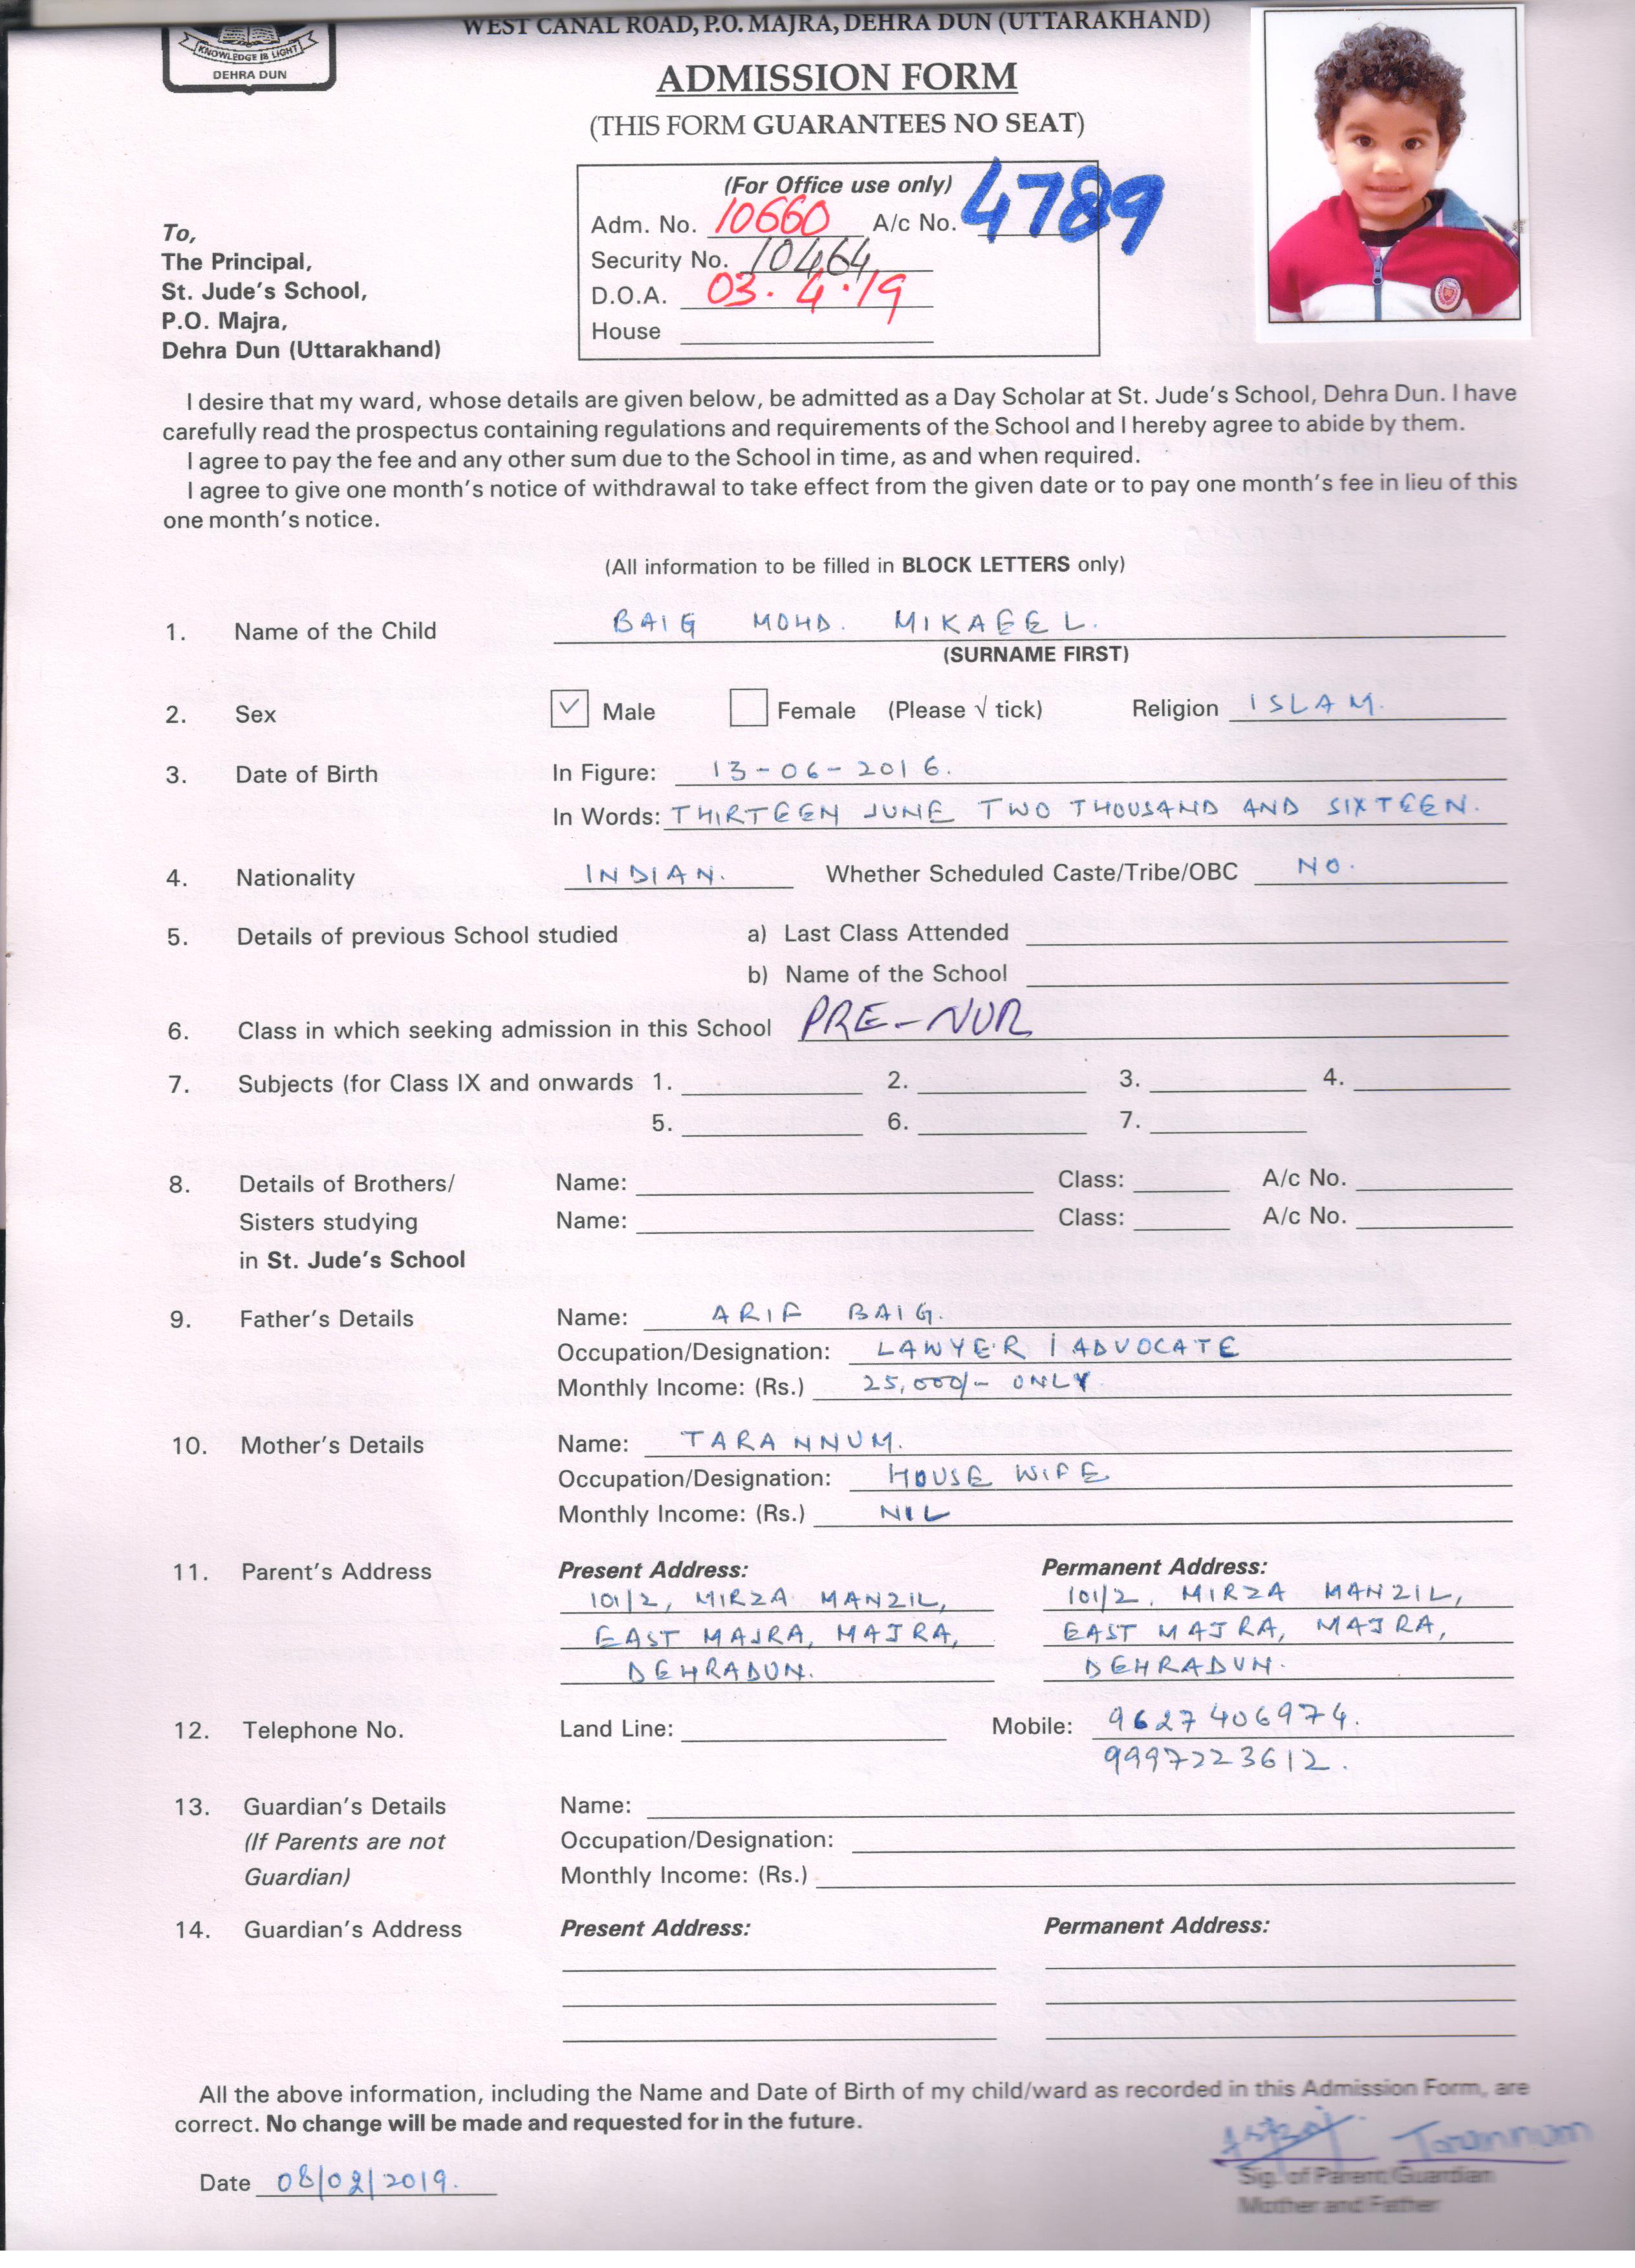 WEST CANAL ROAD, P.O. MAJRA, DEHRA DUN (UTTARAKHAND)
KNOWLEDGE IS LIGHT
DEHRA DUN
ADMISSION FORM
(THIS FORM GUARANTEES NO SEAT)
(For Office use only)
Adm. No. 10660 A/c No. 4789
Security No. 10464
D.O.A. 03.4.19
House
To,
The Principal,
St. Jude's School,
P.O. Majra,
Dehra Dun (Uttarakhand)
I desire that my ward, whose details are given below, be admitted as a Day Scholar at St. Jude's School, Dehra Dun. I have
carefully read the prospectus containing regulations and requirements of the School and I hereby agree to abide by them.
I agree to pay the fee and any other sum due to the School in time, as and when required.
I agree to give one month's notice of withdrawal to take effect from the given date or to pay one month's fee in lieu of this
one month's notice.
(All information to be filled in BLOCK LETTERS only)
1. Name of the Child BAIG MOHD. MIKAEEL.
(SURNAME FIRST)
2. Sex ✓ Male Female (Please √ tick) Religion ISLAM.
3. Date of Birth In Figure: 13-06-2016.
In Words: THIRTEEN JUNE TWO THOUSAND AND SIXTEEN.
4. Nationality INDIAN. Whether Scheduled Caste/Tribe/OBC NO.
5. Details of previous School studied a) Last Class Attended
b) Name of the School
6. Class in which seeking admission in this School PRE-NUR
7. Subjects (for Class IX and onwards 1. 2. 3. 4.
5. 6. 7.
8. Details of Brothers/ Name: Class: A/c No.
Sisters studying Name: Class: A/c No.
in St. Jude's School
9. Father's Details Name: ARIF BAIG.
Occupation/Designation: LAWYER | ADVOCATE
Monthly Income: (Rs.) 25,000/- ONLY
10. Mother's Details Name: TARANNUM.
Occupation/Designation: HOUSE WIFE
Monthly Income: (Rs.) NIL
11. Parent's Address Present Address: Permanent Address:
101/2, MIRZA MANZIL, 101/2, MIRZA MANZIL,
EAST MAJRA, MAJRA, EAST MAJRA, MAJRA,
DEHRADUN. DEHRADUN.
12. Telephone No. Land Line: Mobile: 9627406974.
9997223612.
13. Guardian's Details Name:
(If Parents are not Occupation/Designation:
Guardian) Monthly Income: (Rs.)
14. Guardian's Address Present Address: Permanent Address:
All the above information, including the Name and Date of Birth of my child/ward as recorded in this Admission Form, are
correct. No change will be made and requested for in the future.
Tarannum
Date 08/02/2019. Sig. of Parent/Guardian
Mother and Father